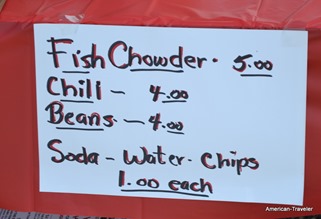 Fish Chowder · 5.00
Chili – 4.00
Beans – 4.00
Soda – Water · Chips
1.00 each
American-Traveler